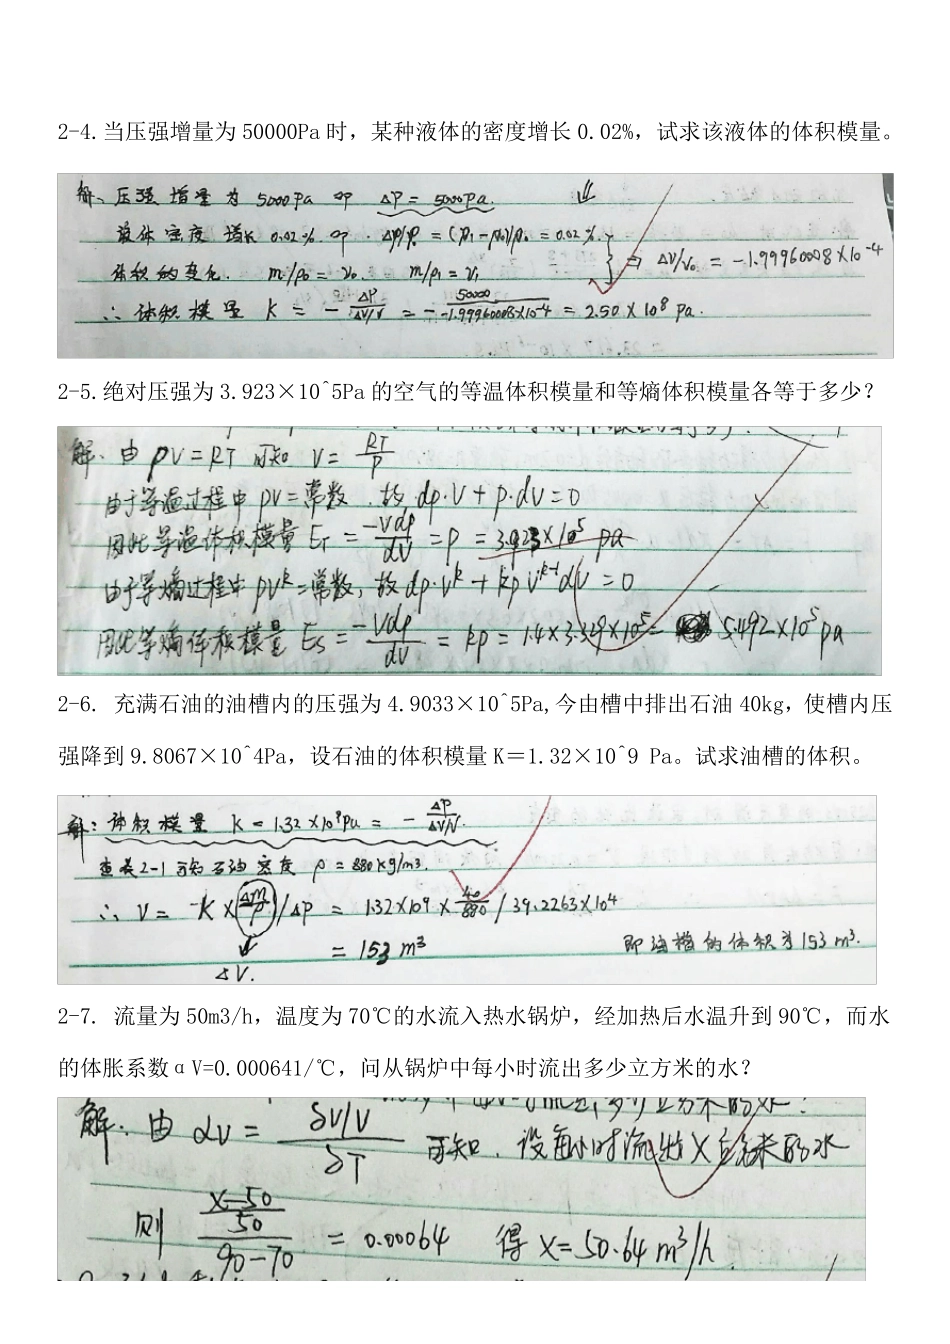 2-4.当压强增量为50000Pa时，某种液体的密度增长0.02%，试求该液体的体积模量。
解、压强增量为5000Pa 即 ΔP=5000Pa.
液体密度增长0.02%. 即. Δρ/ρ₀=(ρ₁-ρ₀)/ρ₀=0.02%.
体积的变化. m/ρ₀=V₀. m/ρ₁=V₁ } ⇒ ΔV/V₀=-1.99960008×10⁻⁴
∴体积模量 K=-ΔP/(ΔV/V)=-50000/(-1.99960008×10⁻⁴)=2.50×10⁸Pa.
2-5.绝对压强为3.923×10^5Pa的空气的等温体积模量和等熵体积模量各等于多少？
解、由 pV=RT 可知 V=RT/P
由于等温过程中pV=常数.故dp·V+p·dV=0
因此等温体积模量 E_T=-Vdp/dV=p=3.923×10⁵ pa
由于等熵过程中pVᵏ=常数，故dp·Vᵏ+kpVᵏ⁻¹dV=0
因此等熵体积模量 Es=-Vdp/dV=kp=1.4×3.329×10⁵= 5.492×10⁵pa
2-6. 充满石油的油槽内的压强为4.9033×10^5Pa,今由槽中排出石油40kg，使槽内压
强降到9.8067×10^4Pa，设石油的体积模量K＝1.32×10^9 Pa。试求油槽的体积。
解：体积模量 K=1.32×10⁹Pa=-ΔP/(ΔV/V).
查表2-1可知石油密度 ρ=880kg/m³.
∴ V=-K×(Δm/ρ)/ΔP=1.32×10⁹×40/880/39.2263×10⁴
=153m³
ΔV.
即油槽的体积为153m³.
2-7. 流量为50m3/h，温度为70℃的水流入热水锅炉，经加热后水温升到90℃，而水
的体胀系数αV=0.000641/℃，问从锅炉中每小时流出多少立方米的水？
解.由 αV=(δV/V)/δT 可知. 设每小时流出X立方米的水
则 ((X-50)/50)/(90-70)=0.00064 得X=50.64m³/h.